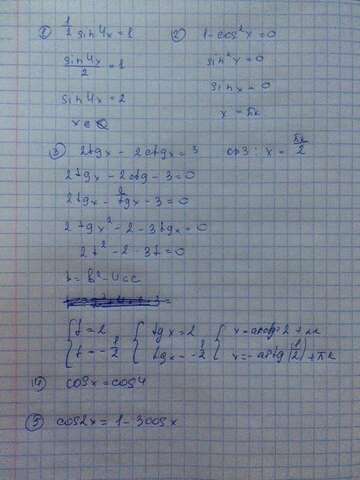 ① 1/2 sin4x = 1
sin4x/2 = 1
sin4x = 2
x ∈ ∅
② 1 - cos²x = 0
sin²x = 0
sin x = 0
x = πk
③ 2tgx - 2ctgx = 3 одз: x = πk/2
2tgx - 2ctg - 3 = 0
2tgx - 2/tgx - 3 = 0
2tgx² - 2 - 3tgx = 0
2t² - 2 - 3t = 0
{ t = 2 { tgx = 2 { x = arctg 2 + πk
{ t = -1/2 { tgx = -1/2 { x = -arctg |1/2| + πk
④ cosx = cos4
⑤ cos2x = 1 - 3cosx